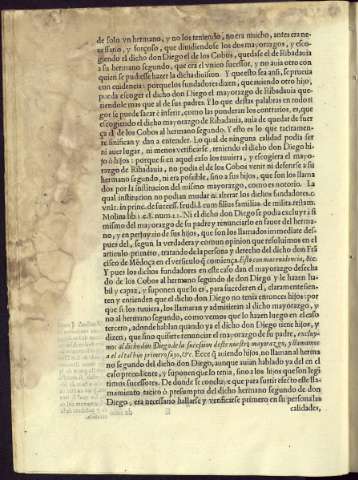 de solo vn hermano, y no los teniendo, no era mucho, antes era ne-
cessario, y forçoso, que diuidiendose los dos mayorazgos, y esco-
giendo el dicho don Diego el de los Cobos, quedasse el de Ribadauia
a su hermano segundo, que era el vnico sucessor, y no auia otro con
quien se pudiesse hazer la dicha diuision. Y que esto sea ansi, se prueua
con euidencia: porque los fundadores dizen, que auiendo otro hijo,
pueda escoger el dicho don Diego el mayorazgo de Ribadauia que-
riendole mas que al de sus padres. Y lo que destas palabras en todo
gor se puede sacar è inferir, como las ponderan los contrarios, es, que
escogiendo el dicho mayorazgo de Ribadauia, auia de quedar de fuer
ça el de los Cobos al hermano segundo. Y esto es lo que tacitamen-
te significan y dan a entender. Lo qual de ninguna calidad podia ser
ni auer lugar, ni menos verificarse, teniendo el dicho don Diego hi-
jo ò hijos: porque si en aquel caso los tuuiera, y escogiera el mayo-
razgo de Ribadauia, no podia el de los Cobos venir ni deferirse a su
hermano segundo, ni era possible, sino a sus hijos, que son los llama
dos por la institucion del mismo mayorazgo, como es notorio. La
qual institucion no podian mudar ni alterar los dichos fundadores.
Molina lib. 1. Ni el dicho don Diego se podia excluyr a si
mismo del mayorazgo de su padre y renunciarlo en fauor del herma-
no, y en perjuyzio de sus hijos, que son los llamados immediate des-
pues del, segun la verdadera y comun opinion que resoluimos en el
articulo primero, tratando de la persona y derecho del dicho don Frā
cisco de Mēdoça en el versiculo
Y pues los dichos fundadores en este caso dan el mayorazgo desecha
do de los Cobos al hermano segundo de don Diego y le hazen ha-
bil y capaz, y suponen que lo es, para suceder en el, claramente sien-
ten y entienden que el dicho don Diego no tenia entonces hijos: por
que si los tuuiera, los llamaran y admitieran al dicho mayorazgo, y
no al hermano segundo, como vemos que lo hazen luego en el caso
tercero, adonde hablan quando ya el dicho don Diego tiene hijos, y
dizen, que sino quisiere renunciar el mayorazgo de su padre, excluy-
mos al dicho don Diego de la sucession deste nuestro mayorazgo, y llamamos
a el al tal hijo primero suyo, &c. Ecce q̃ auiendo hijos, no llaman al herma
no segundo del dicho don Diego, aunque auian hablado ya del en el
caso precediente, y suponen que lo tenia, sino a los hijos que son legi-
timos sucessores. De donde se concluye que para surtir efecto este lla-
mamiento tacito ò presumpto del dicho hermano segundo de don
Diego, era necessario hallarse y verificarse primero en su persona las
calidades,